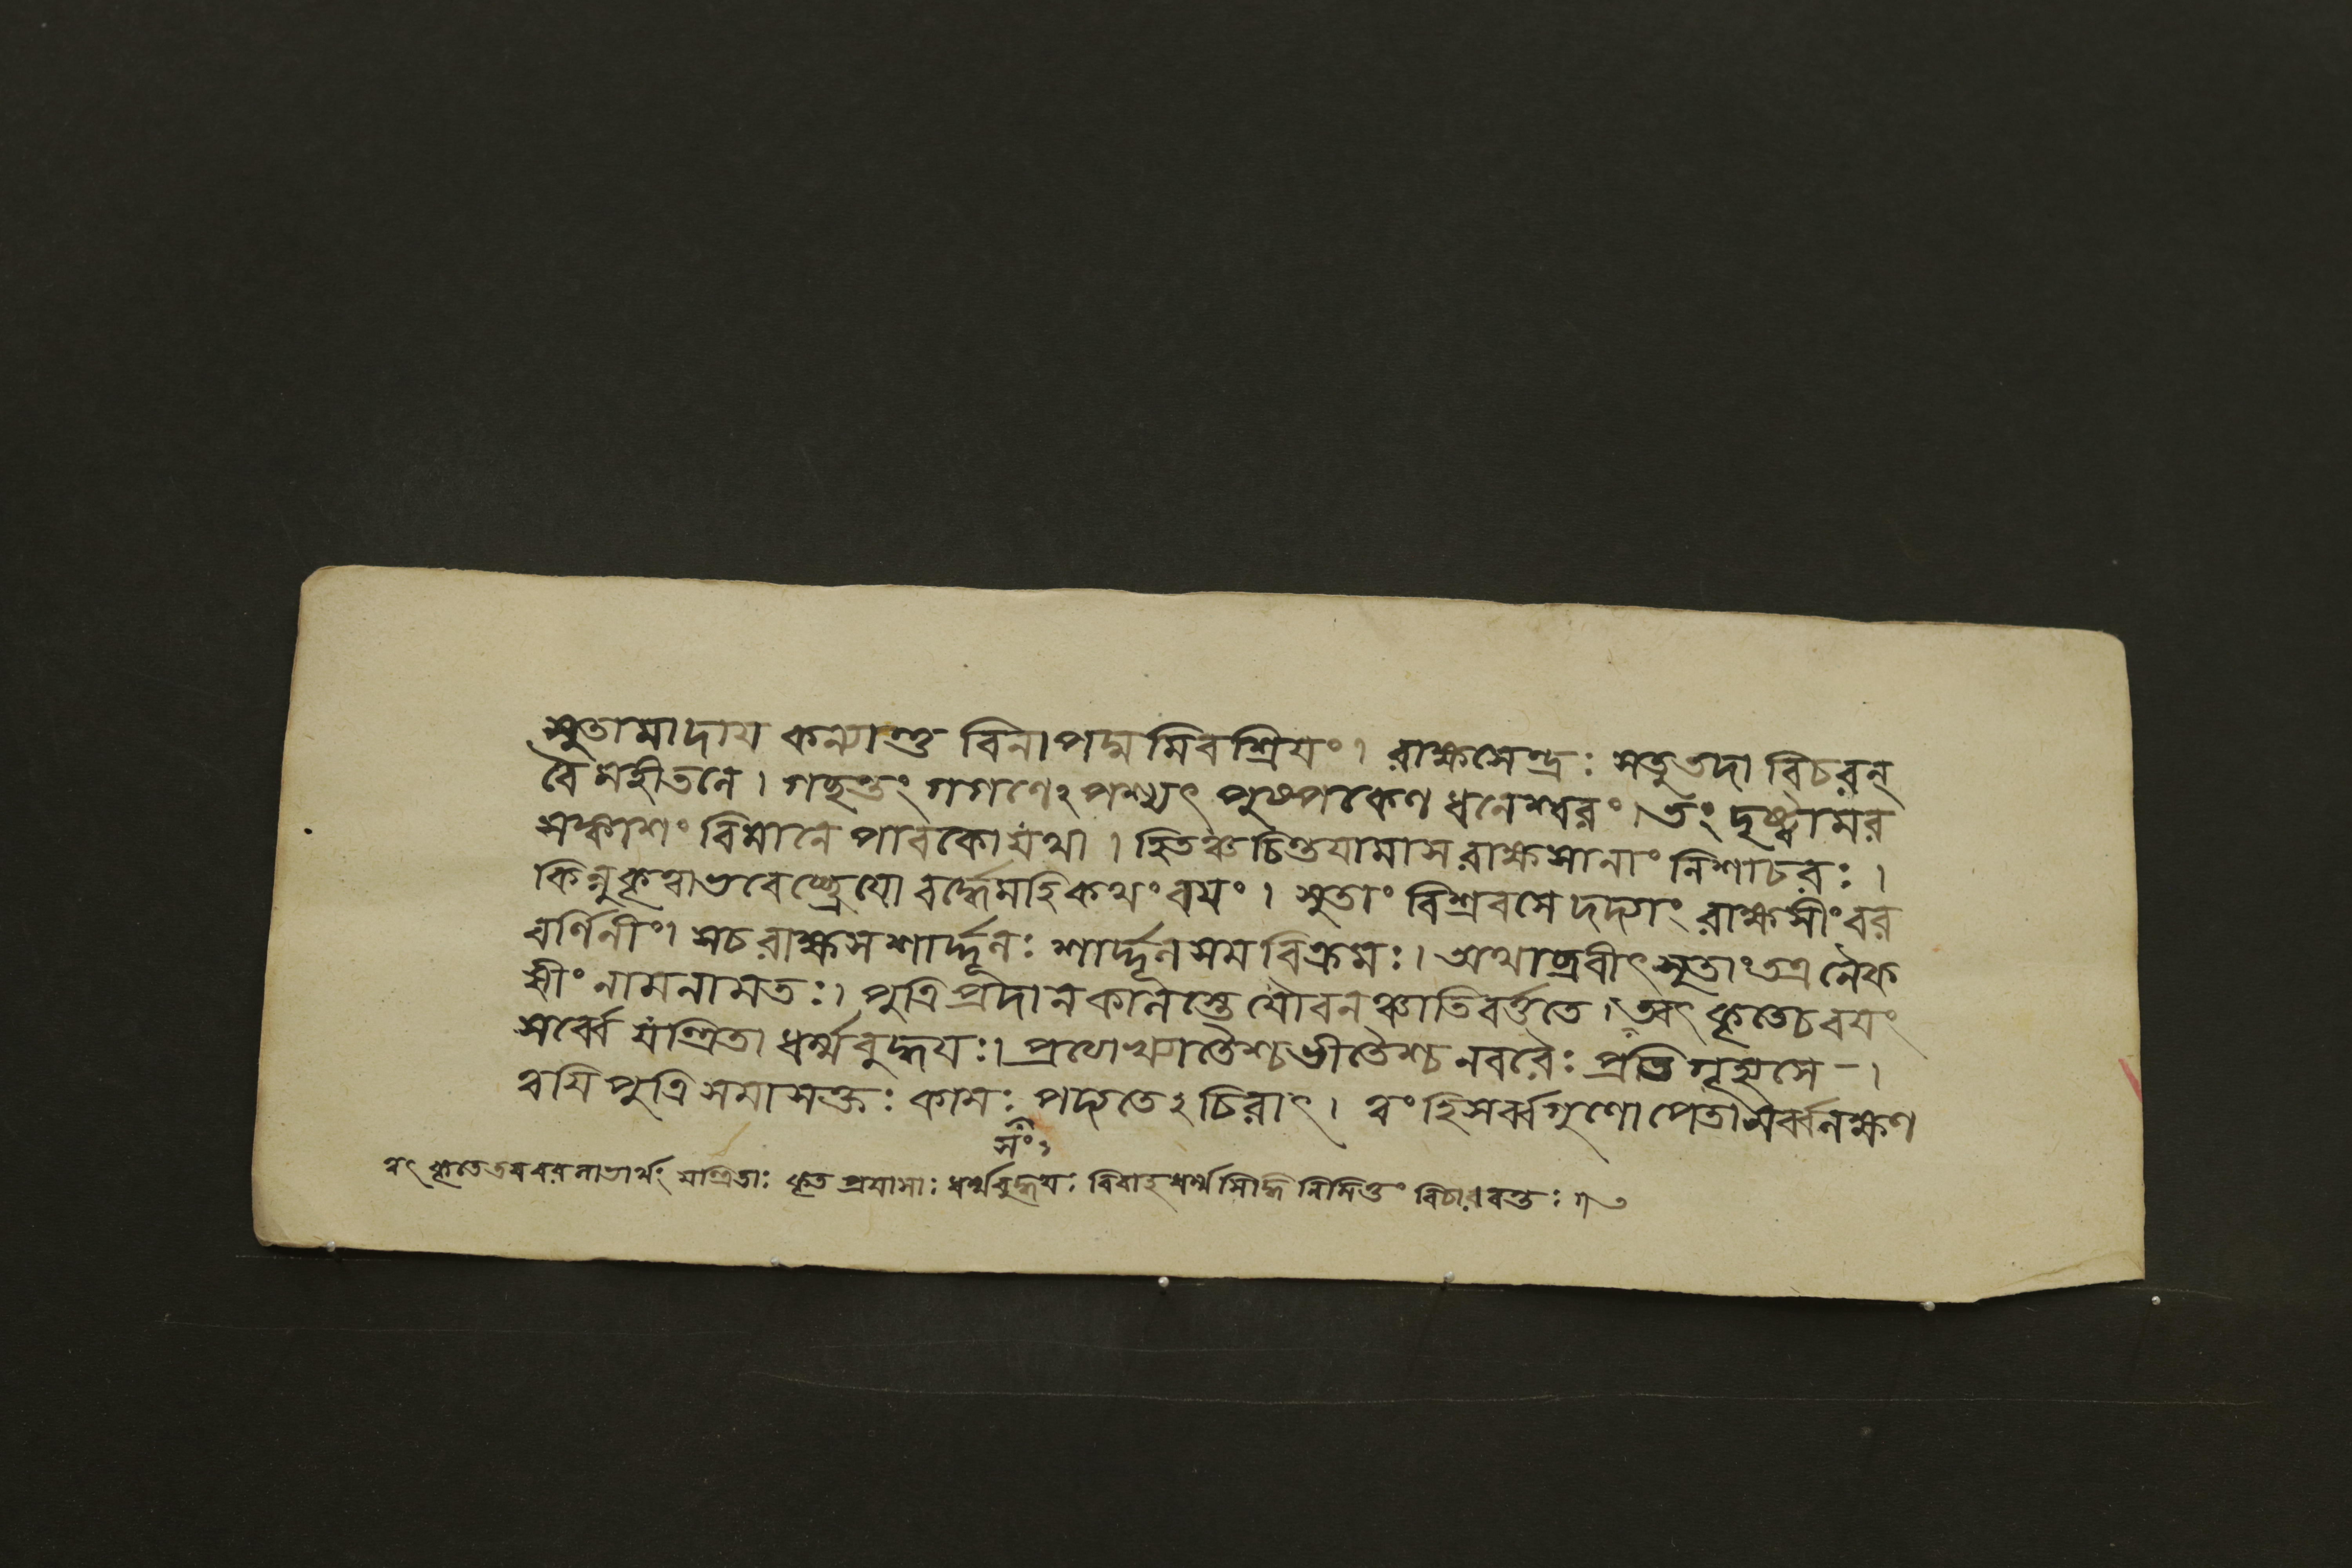 সুতামাদায কন্যান্তু বিনা পদ্মমিবশ্রিযং। রাক্ষসেন্দ্রঃ সতু তদা বিচরন্
বৈ মহীতলে। গচ্ছন্তং গগণেঽপশ্যৎ পুষ্পকেণ ধনেশ্বরং। তং দৃষ্ট্বামর
সঙ্কাশং বিমানে পাবকোযথা। হিতঞ্চ চিন্তযামাস রাক্ষসানাং নিশাচরঃ।
কিন্নুকৃত্বাভবেচ্ছ্রেযো বর্দ্ধেমহি কথং বযং। সুতাং বিশ্রবসে দদ্যাং রাক্ষসীং বর
বর্ণিনীং। সচ রাক্ষসশার্দ্দূলঃ শার্দ্দূলসমবিক্রমঃ। অথাব্রবীৎ সুতাং তত্র নৈক
সীং নামনামতঃ। পুত্রি প্রদানকালস্তে যৌবনঞ্চাতিবর্ত্ততে। ত্বৎকৃতেচ বযং
সর্ব্বে যন্ত্রিতা ধর্ম্মবুদ্ধযঃ। প্রত্যেখ্যাতৈশ্চ ভীতৈশ্চ নবরৈঃ প্রতিগৃহ্যসে-।
ত্বযি পুত্রি সমাসক্তঃ কামঃ পদ্যতেঽচিরাৎ। ত্বং হি সর্ব্বগুণোপেতা সর্ব্বলক্ষণ
ত্বৎ কৃতে তব বরলাভার্থং যন্ত্রিতাঃ কৃত প্রযাসাঃ ধর্ম্মবুদ্ধযঃ বিবাহ ধর্ম্মসিদ্ধি নিমিত্তং বিচারবন্তঃ